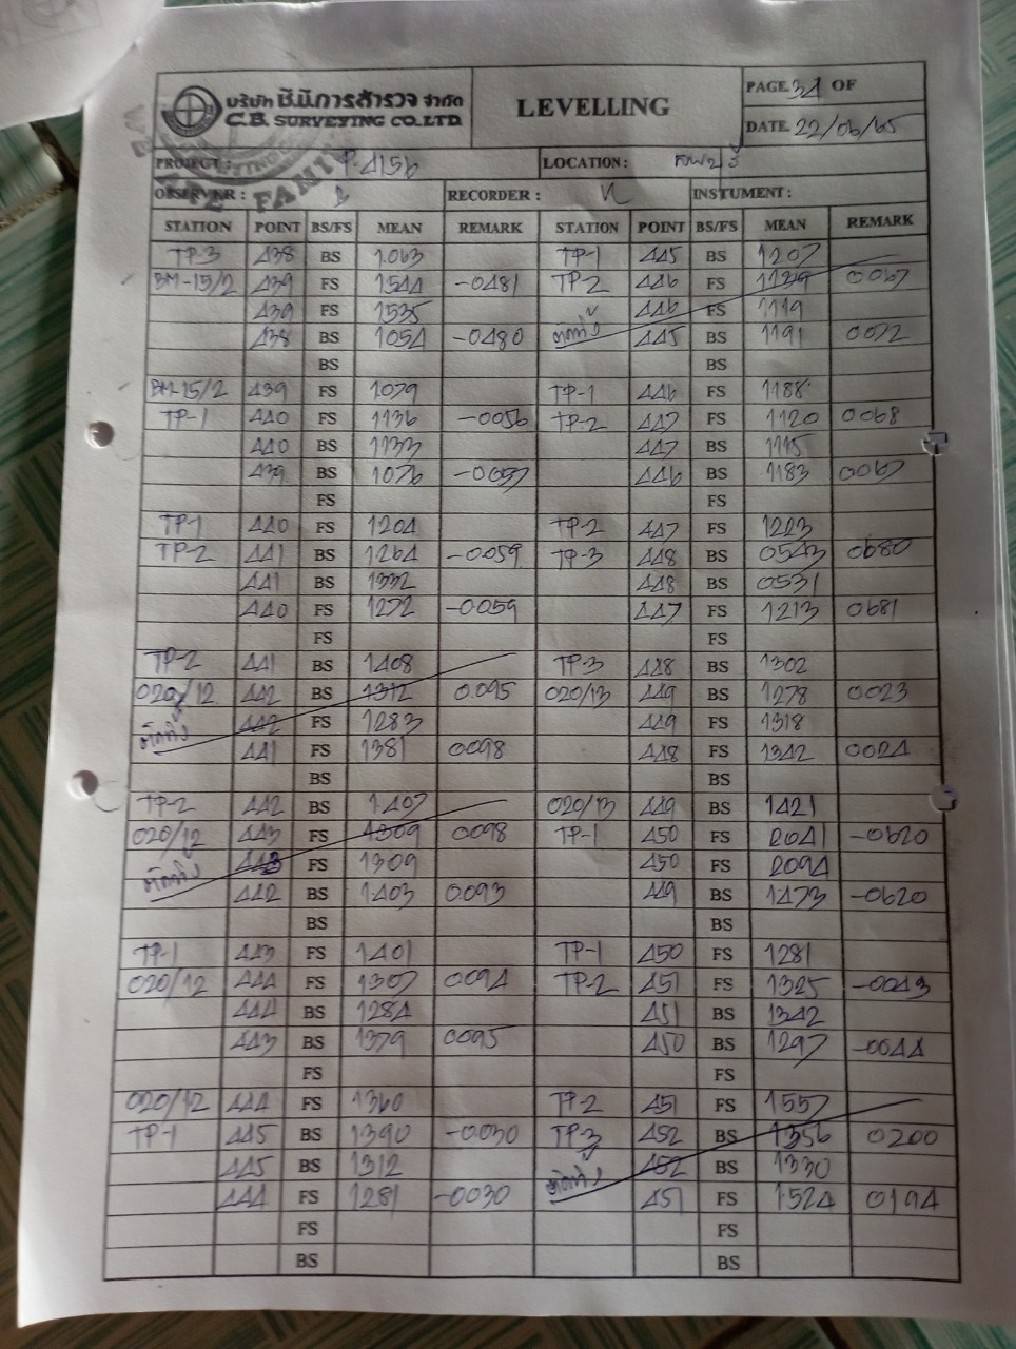 บริษัท ซี.บี.การสำรวจ จำกัด
C.B. SURVEYING CO.,LTD.
LEVELLING
PAGE 31 OF
DATE 22/06/65
PROJECT : P.4156 LOCATION :
OBSERVER : RECORDER : INSTUMENT :
STATION POINT BS/FS MEAN REMARK STATION POINT BS/FS MEAN REMARK
TP-3 438 BS 1.063 TP-1 445 BS 1207
BM-15/2 439 FS 1544 -0481 TP-2 446 FS 1139 0067
439 FS 1535 446 FS 1119
438 BS 1054 -0480 ตัดทิ้ง 445 BS 1191 0072
BS BS
BM-15/2 439 FS 1079 TP-1 446 FS 1188
TP-1 440 FS 1136 -0056 TP-2 447 FS 1120 0068
440 BS 1133 447 BS 1115
439 BS 1076 -0057 446 BS 1183 0067
FS FS
TP-1 440 FS 1204 TP-2 447 FS 1223
TP-2 441 BS 1264 -0059 TP-3 448 BS 0543 0680
441 BS 1332 448 BS 0531
440 FS 1272 -0059 447 FS 1213 0681
FS FS
TP-2 441 BS 1408 TP-3 448 BS 1302
020/12 442 BS 1312 0.095 020/13 449 BS 1278 0023
ตัดทิ้ง 442 FS 1283 449 FS 1318
441 FS 1381 0098 448 FS 1342 0024
BS BS
TP-2 442 BS 1407 020/13 449 BS 1421
020/12 443 FS 1309 0098 TP-1 450 FS 2041 -0620
ตัดทิ้ง 443 FS 1309 450 FS 2094
442 BS 1403 0.093 449 BS 1473 -0620
BS BS
TP-1 443 FS 1401 TP-1 450 FS 1281
020/12 444 FS 1307 0094 TP-2 451 FS 1325 -0043
444 BS 1284 451 BS 1342
443 BS 1379 0095 450 BS 1297 -0044
FS FS
020/12 444 FS 1360 TP-2 451 FS 1557
TP-1 445 BS 1390 -0030 TP-3 452 BS 1356 0200
445 BS 1312 ตัดทิ้ง 452 BS 1330
444 FS 1281 -0030 451 FS 1524 0194
FS FS
BS BS